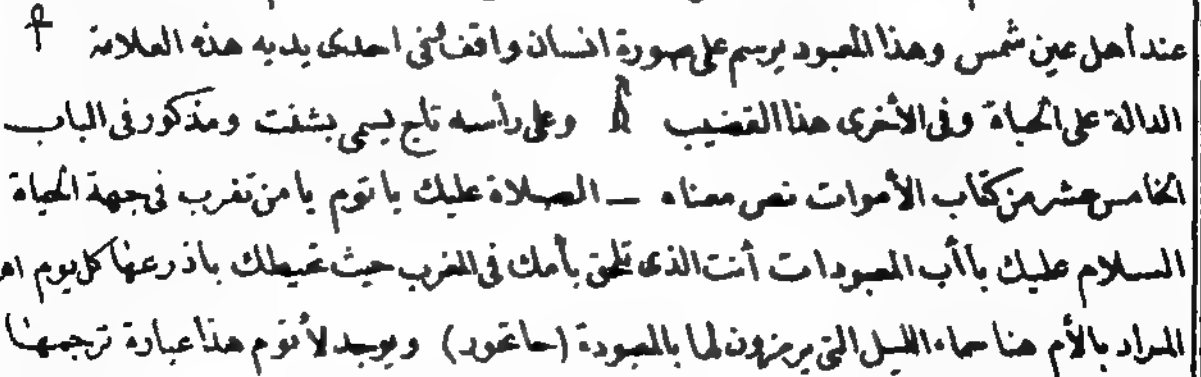 عند أهل عين شمس وهذا المعبود يرسم على صورة انسان واقف في احدى يديه هذه العلامة ☥
الدالة على الحياة وفي الأخرى هذا القضيب وعلى رأسه تاج يسمى بشنت ومذكور في الباب
الخامس عشر من كتاب الأموات نص معناه — الصلاة عليك يا توم يا من تغرب في جهة الحياة
السلام عليك يا أب المعبودات أنت الذي تلحق بأمك في المغرب حيث تحيطك باذرعها كل يوم اه
المراد بالأم هنا سماء الليل التي يرمزون لها بالمعبودة (حاتحور) ويوجد لأتوم هذا عبارة ترجمتها